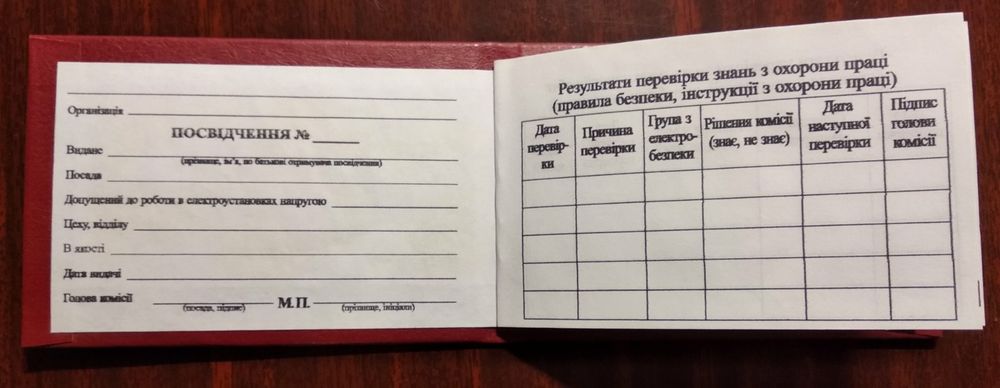 Організація
ПОСВІДЧЕННЯ №
Видане
(прізвище, ім'я, по батькові отримувача посвідчення)
Посада
Допущений до роботи в електроустановках напругою
Цеху, відділу
В якості
Дата видачі
Голова комісії М.П.
(посада, підпис) (прізвище, ініціали)
Результати перевірки знань з охорони праці
(правила безпеки, інструкції з охорони праці)
Дата перевір-ки
Причина перевірки
Група з електро-безпеки
Рішення комісії (знає, не знає)
Дата наступної перевірки
Підпис голови комісії